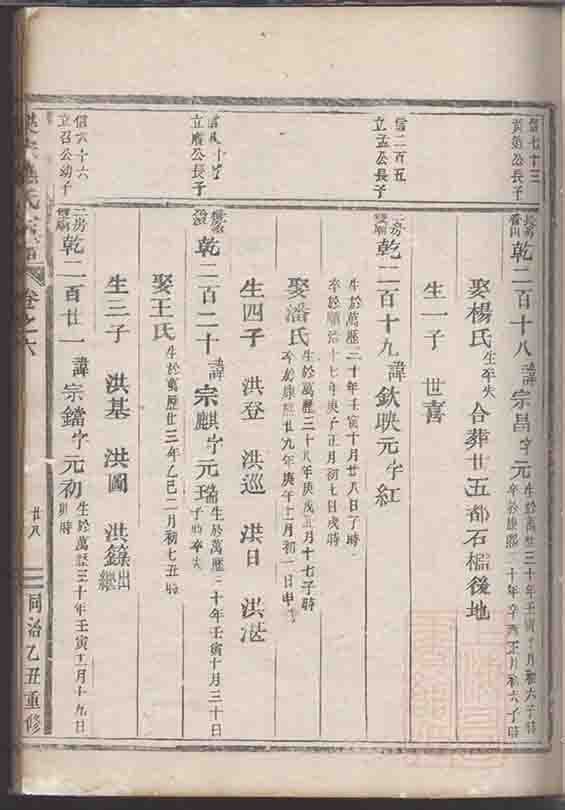 信七十三
公長子
乾二百十八諱宗昌字元
生於萬歷三十年壬寅十月初六子時
卒於康熙二十年辛酉正月初六子時
娶楊氏生卒失合葬廿五都石榴後地
生一子 世喜
信二百五
立孟公長子
二房
乾二百十九諱欽映元字紅
生於萬歷三十年壬寅十月廿八日子時
卒於順治十七年庚子正月初七日戌時
娶潘氏
生於萬歷三十八年庚戌正月十七子時
卒於康熙廿九年庚午十一月初一日申時
生四子 洪登 洪巡 洪日 洪湛
立廣公長子
乾二百二十諱宗麒字元瑞
生於萬歷三十年壬寅十月三十日
子時卒失
娶王氏生於萬歷廿三年乙巳二月初七丑時
生三子 洪基 洪圖 洪籙出繼
信六十六
立召公幼子
二房
乾二百廿一諱宗鐺字元初
生於萬歷三十年壬寅五月十九日
卯時
氏宗譜
卷之六
廿八
同治乙丑重修